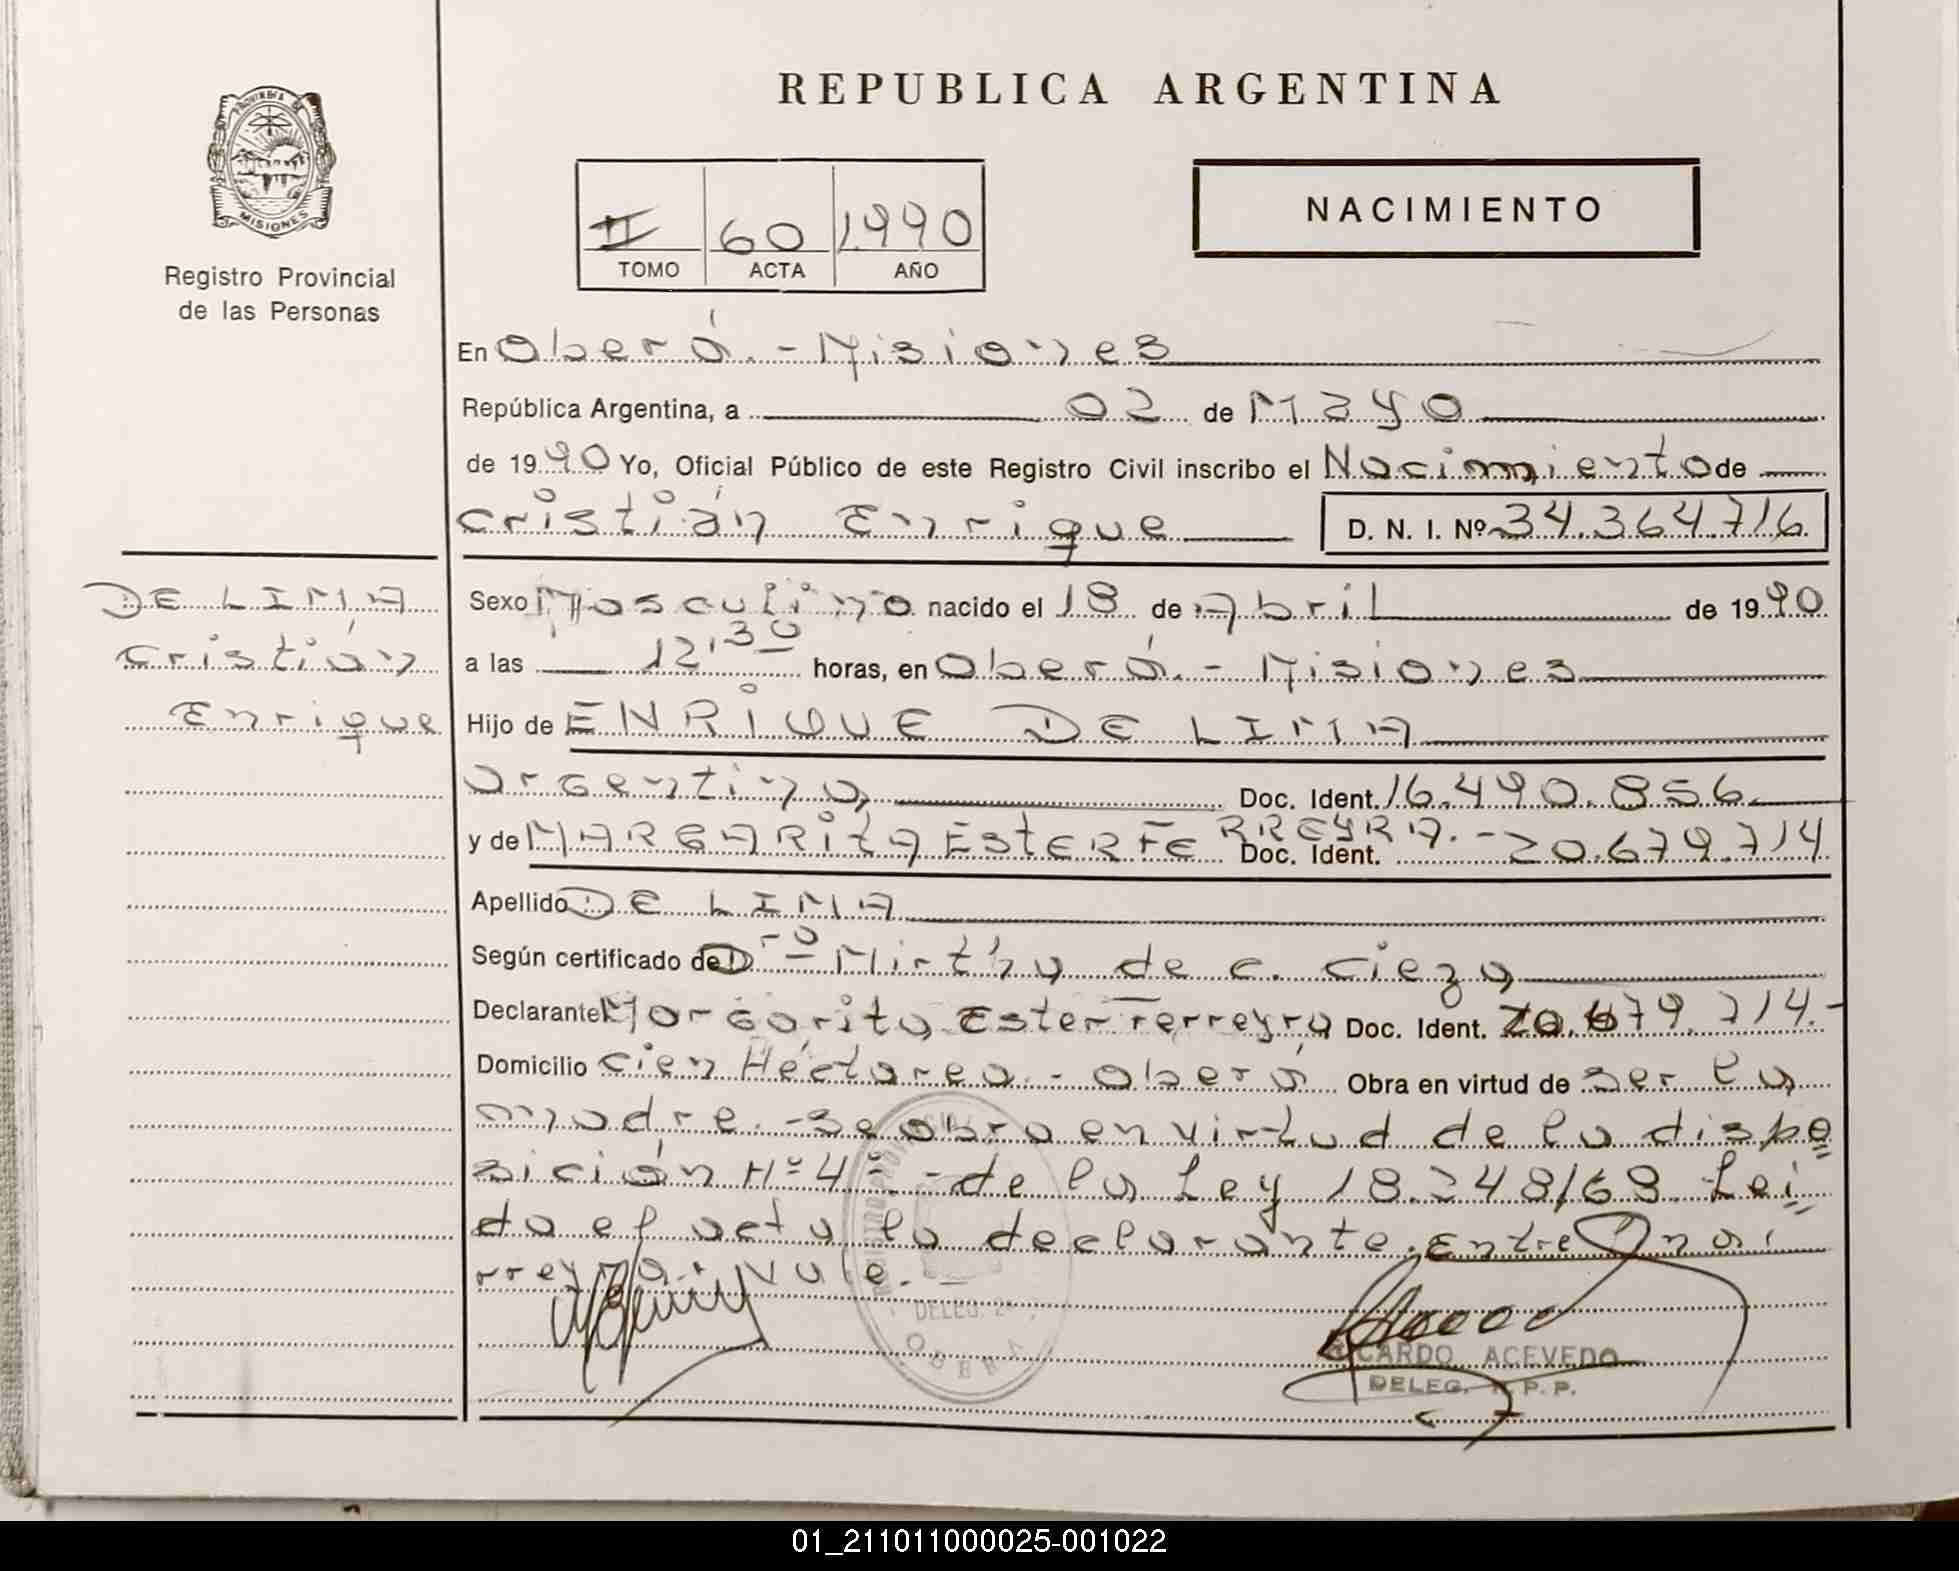 REPUBLICA ARGENTINA
PROVINCIA DE
MISIONES
Registro Provincial
de las Personas
II 60 1990
TOMO ACTA AÑO
NACIMIENTO
En Oberá.- Misiones
República Argentina, a 02 de Mayo
de 1990 Yo, Oficial Público de este Registro Civil inscribo el Nacimiento de
Cristián Enrique D. N. I. Nº 34.364.716
DE LIMA
Cristián
Enrique
Sexo Masculino nacido el 18 de Abril de 1990
a las 12,30 horas, en Oberá.- Misiones
Hijo de ENRIQUE DE LIMA
argentino, Doc. Ident. 16.490.856.
y de MARGARITA ESTER FERREYRA.- Doc. Ident. 20.679.714
Apellido DE LIMA
Según certificado de Dra Mirtha de C. Cieza
Declarante Margarita Ester Ferreyra Doc. Ident. 20.679.714.-
Domicilio Cien Hectarea - Oberá Obra en virtud de ser la
madre.- Se obra en virtud de la dispo
sición Nº 4º.- de la Ley 18.248/69 Leí
da el acta la declarante. Entre
rreyra. vale.-
REGISTRO PROVINCIAL
DELEG. 2
OBERA
RICARDO ACEVEDO
DELEG. R. P. P.
01_211011000025-001022